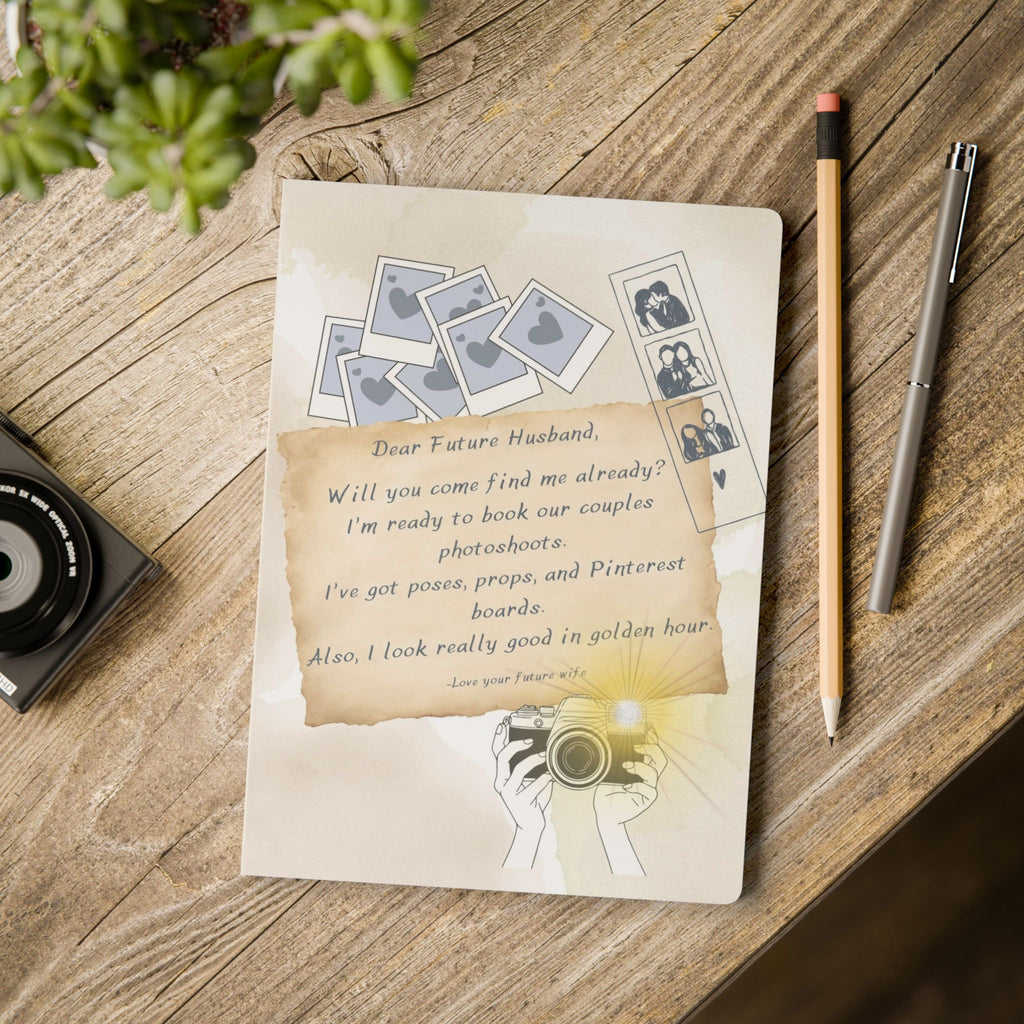 Dear Future Husband,
Will you come find me already?
I'm ready to book our couples
photoshoots.
I've got poses, props, and Pinterest
boards.
Also, I look really good in golden hour.
-Love your future wife
5X WIDE OPTICAL ZOOM VR